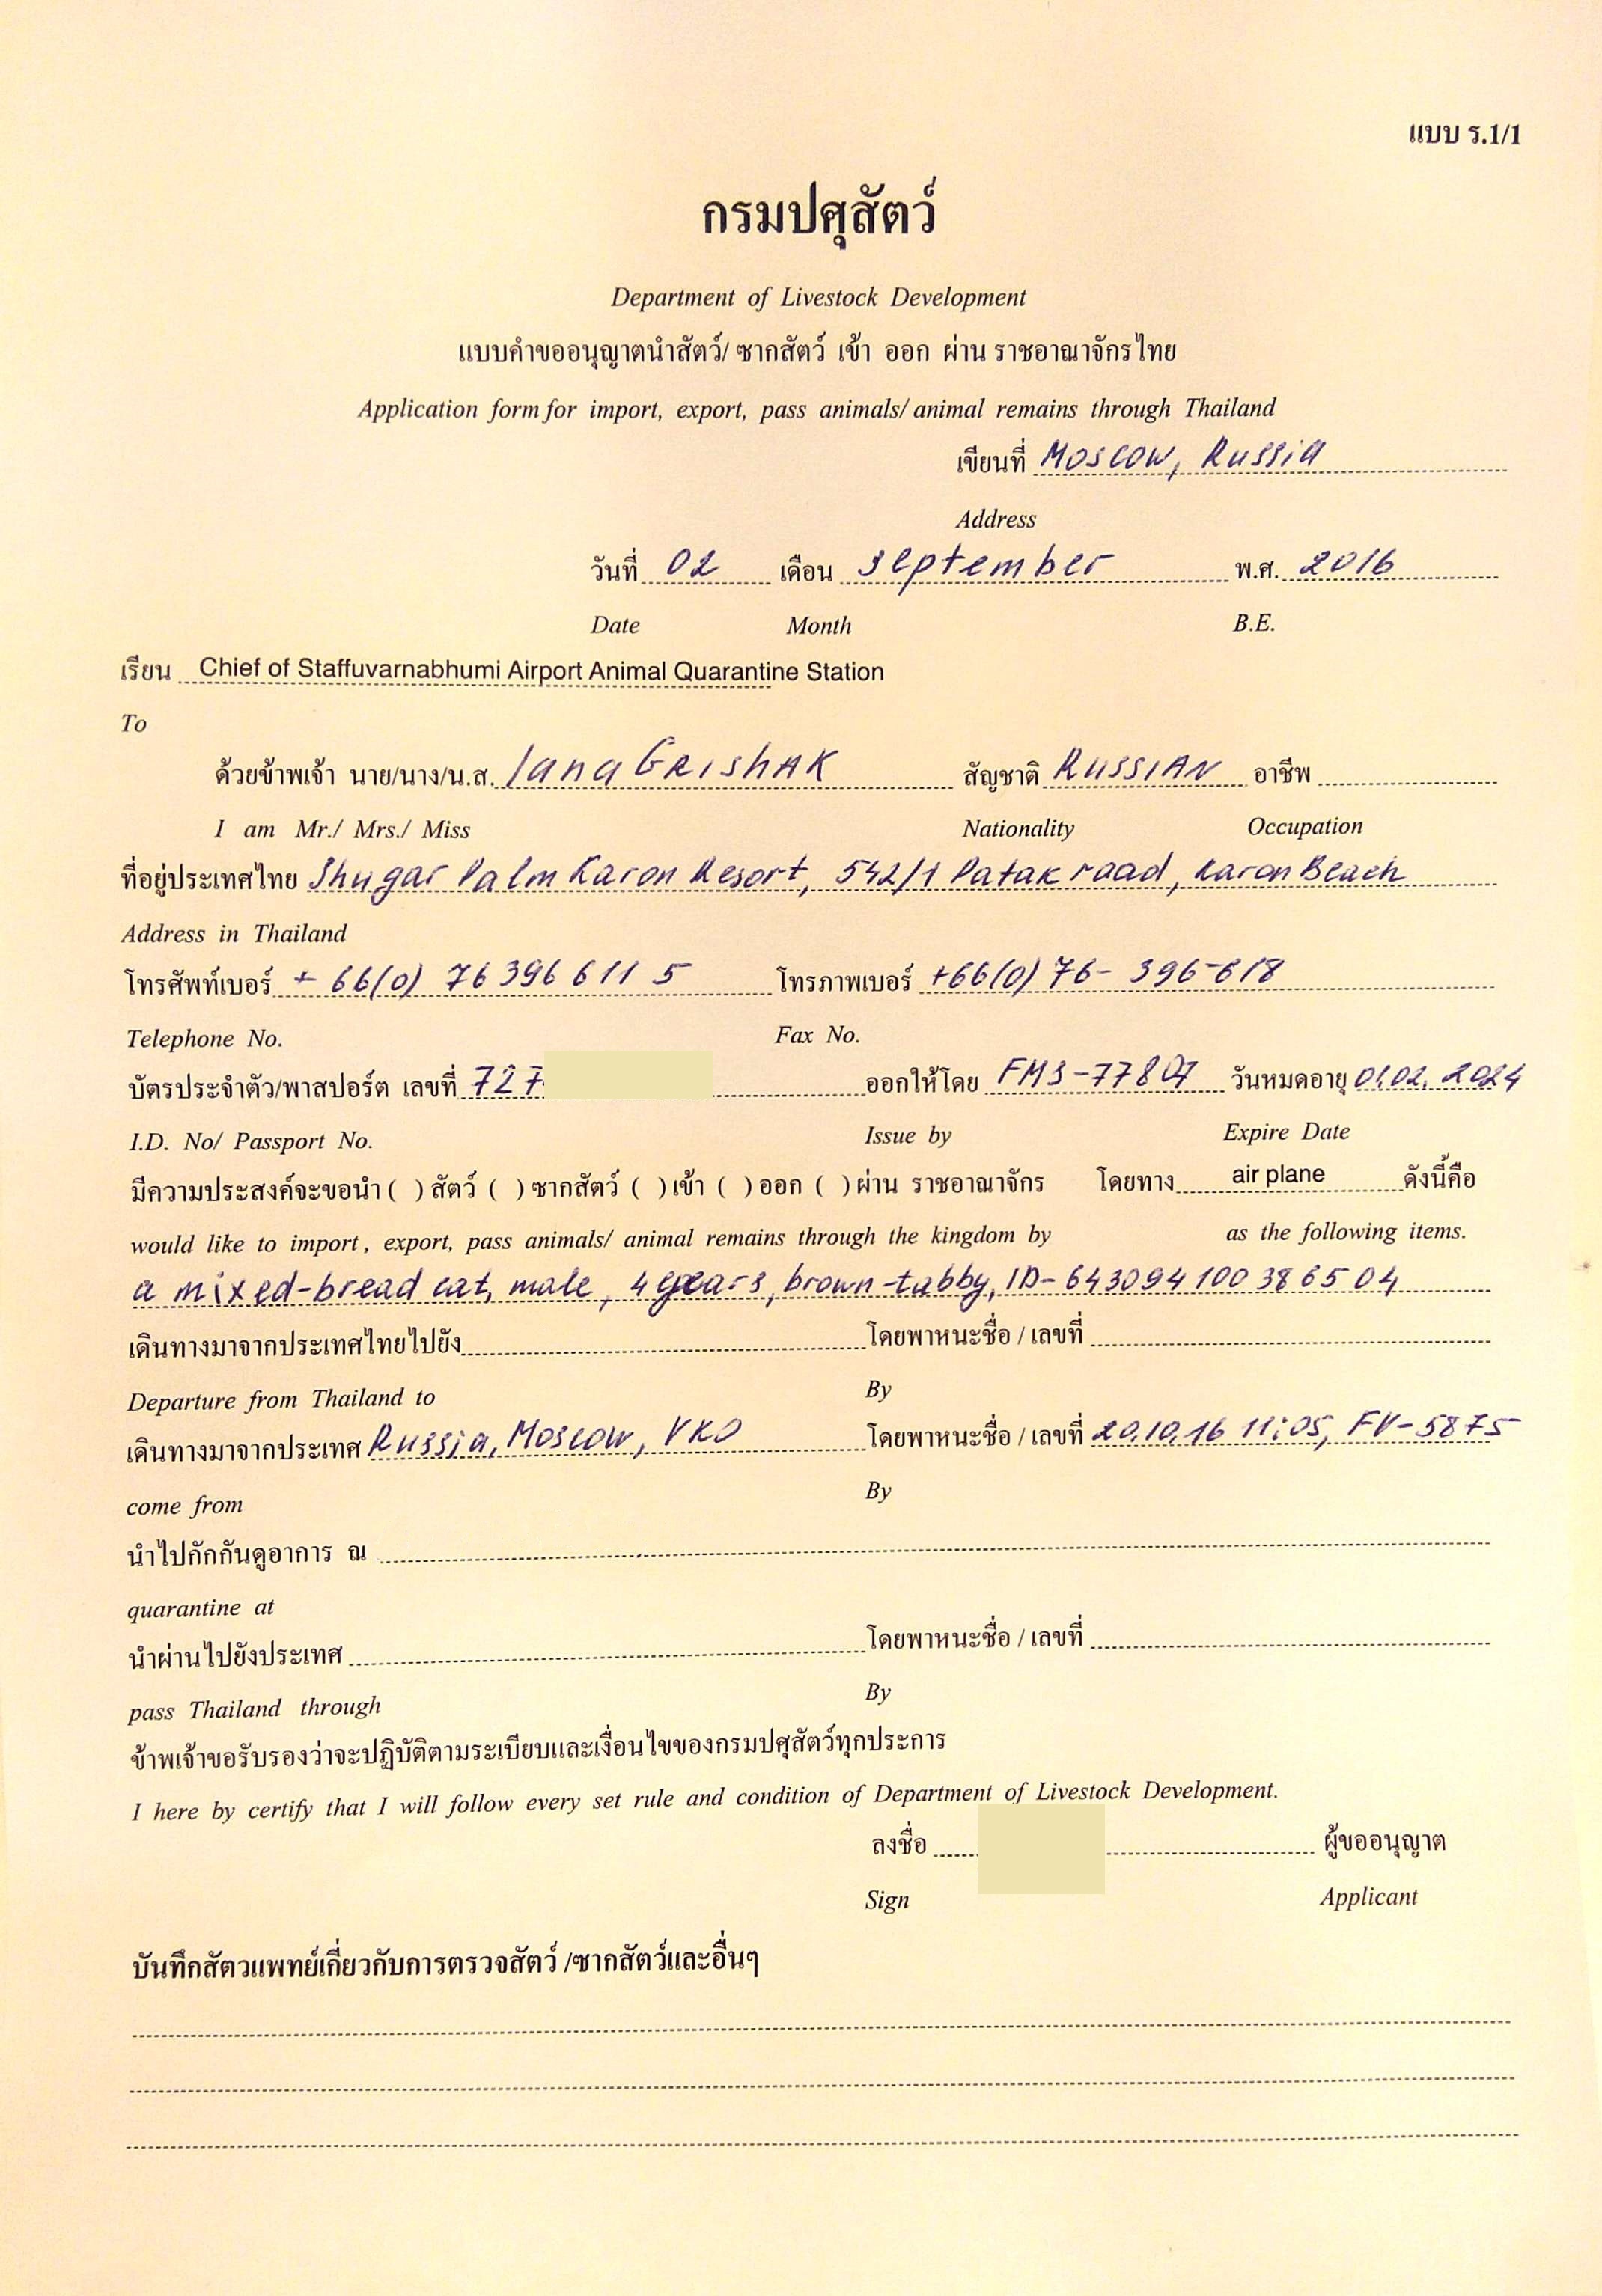 แบบ ร.1/1
กรมปศุสัตว์
Department of Livestock Development
แบบคำขออนุญาตนำสัตว์/ ซากสัตว์ เข้า ออก ผ่าน ราชอาณาจักรไทย
Application form for import, export, pass animals/ animal remains through Thailand
เขียนที่ Moscow, Russia
Address
วันที่ 02 เดือน september พ.ศ. 2016
Date Month B.E.
เรียน Chief of Staffuvarnabhumi Airport Animal Quarantine Station
To
ด้วยข้าพเจ้า นาย/นาง/น.ส. Iana GRISHAK สัญชาติ RUSSIAN อาชีพ
I am Mr./ Mrs./ Miss Nationality Occupation
ที่อยู่ประเทศไทย Shugar Palm Karon Resort, 542/1 Patak raad, Karon Beach
Address in Thailand
โทรศัพท์เบอร์ + 66(0) 76 396 611 5 โทรภาพเบอร์ +66(0) 76- 396-618
Telephone No. Fax No.
บัตรประจำตัว/พาสปอร์ต เลขที่ 727 ออกให้โดย FMS-77807 วันหมดอายุ 01.02. 2024
I.D. No/ Passport No. Issue by Expire Date
มีความประสงค์จะขอนำ ( ) สัตว์ ( ) ซากสัตว์ ( ) เข้า ( ) ออก ( ) ผ่าน ราชอาณาจักร โดยทาง air plane ดังนี้คือ
would like to import, export, pass animals/ animal remains through the kingdom by as the following items.
a mixed-bread cat, male, 4 years, brown-tabby, ID- 643094100386504
เดินทางมาจากประเทศไทยไปยัง โดยพาหนะชื่อ / เลขที่
Departure from Thailand to By
เดินทางมาจากประเทศ Russia, Moscow, VKO โดยพาหนะชื่อ / เลขที่ 20.10.16 11:05, FV-5875
come from By
นำไปกักกันดูอาการ ณ
quarantine at
นำผ่านไปยังประเทศ โดยพาหนะชื่อ / เลขที่
pass Thailand through By
ข้าพเจ้าขอรับรองว่าจะปฏิบัติตามระเบียบและเงื่อนไขของกรมปศุสัตว์ทุกประการ
I here by certify that I will follow every set rule and condition of Department of Livestock Development.
ลงชื่อ ผู้ขออนุญาต
Sign Applicant
บันทึกสัตวแพทย์เกี่ยวกับการตรวจสัตว์ /ซากสัตว์และอื่นๆ